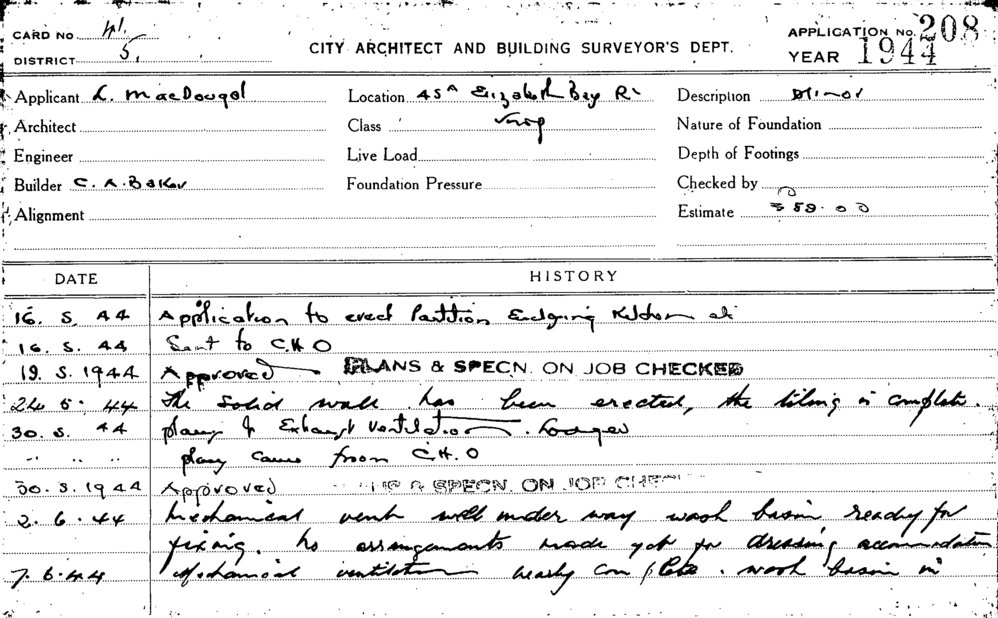 CARD No 41.
DISTRICT 5.
CITY ARCHITECT AND BUILDING SURVEYOR'S DEPT.
APPLICATION No. 208
YEAR 1944
Applicant L. MacDougal
Location 45A Elizabeth Bay Rd
Description Minor
Architect
Class
Nature of Foundation
Engineer
Live Load
Depth of Footings
Builder C. A. Baker
Foundation Pressure
Checked by
Alignment
Estimate £59.00
DATE
HISTORY
16. 5. 44 Application to erect Partition Kitchen etc
16. 5. 44 Sent to C.H.O
19. 5. 1944 Approved PLANS & SPECN. ON JOB CHECKED
24 5. 44 The solid wall has been erected, the tiling is complete.
30. 5. 44 plans of Exhaust Ventilation. Lodged
" " " plans came from C.H.O
30. 5. 1944 Approved PLANS & SPECN. ON JOB CHECKED
2. 6. 44 Mechanical vent well under way wash basin ready for
fixing. No arrangements made yet for dressing accommodation
7. 6. 44 Mechanical ventilation nearly complete. wash basin in